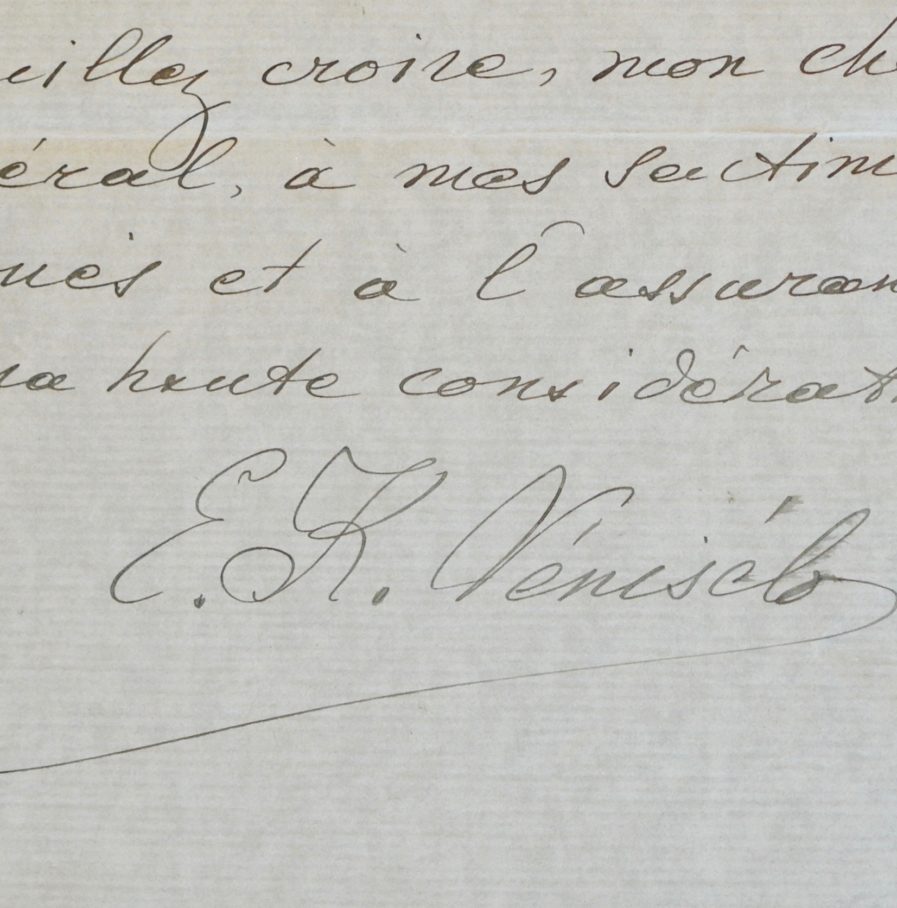 uillez croire, mon che
éral, à mes sentim
ués et à l'assuran
ma haute considérat
E. K. Vénisélo